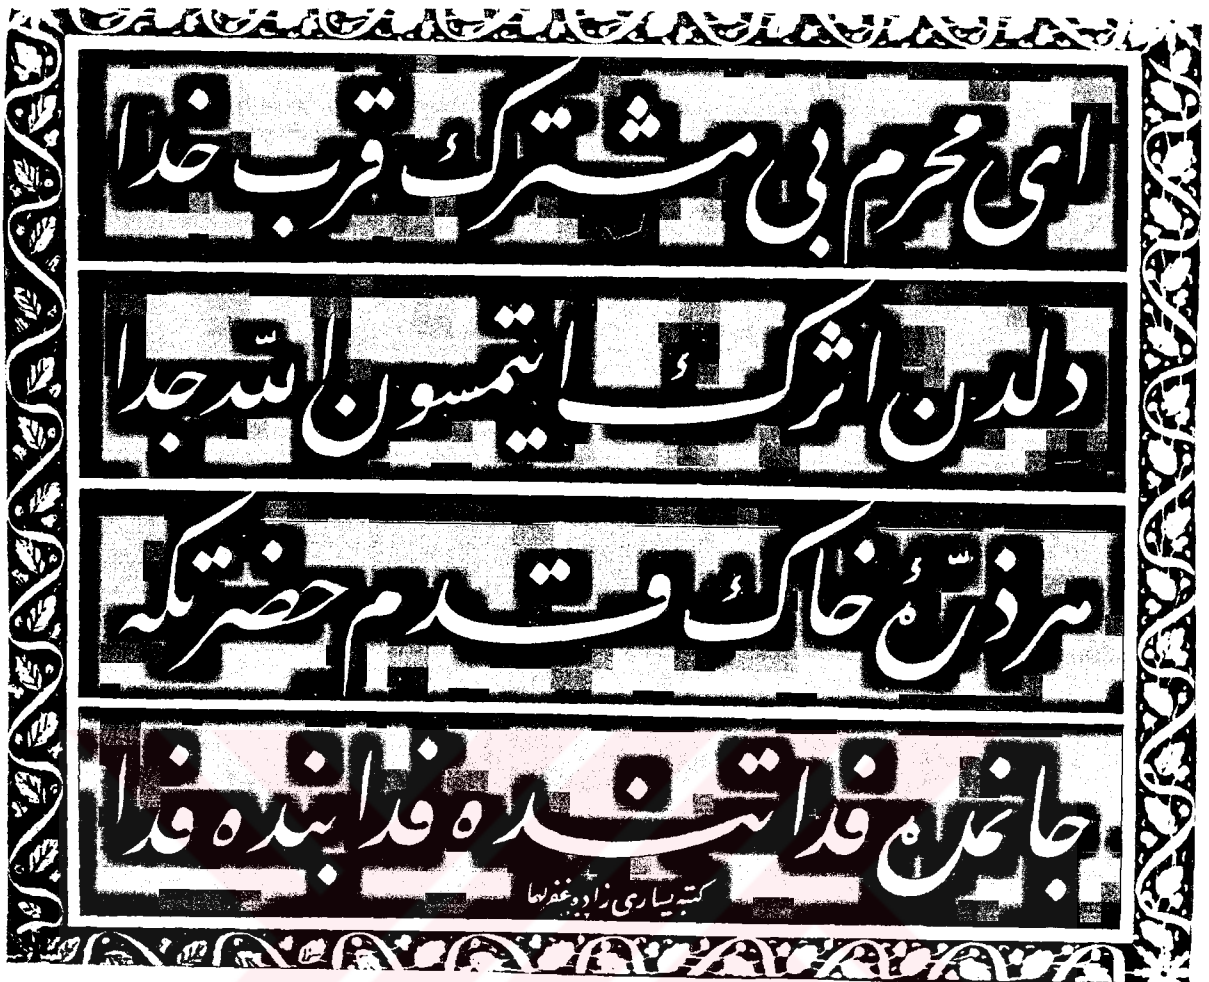 ای محرم بی مشترك قرب خدا
دلدن اثرك ایتمسون الله جدا
هر ذره خاك قدم حضرتكه
جانمده فدا تنده فدا بنده فدا
كتبه یساری زاده غفرلهما